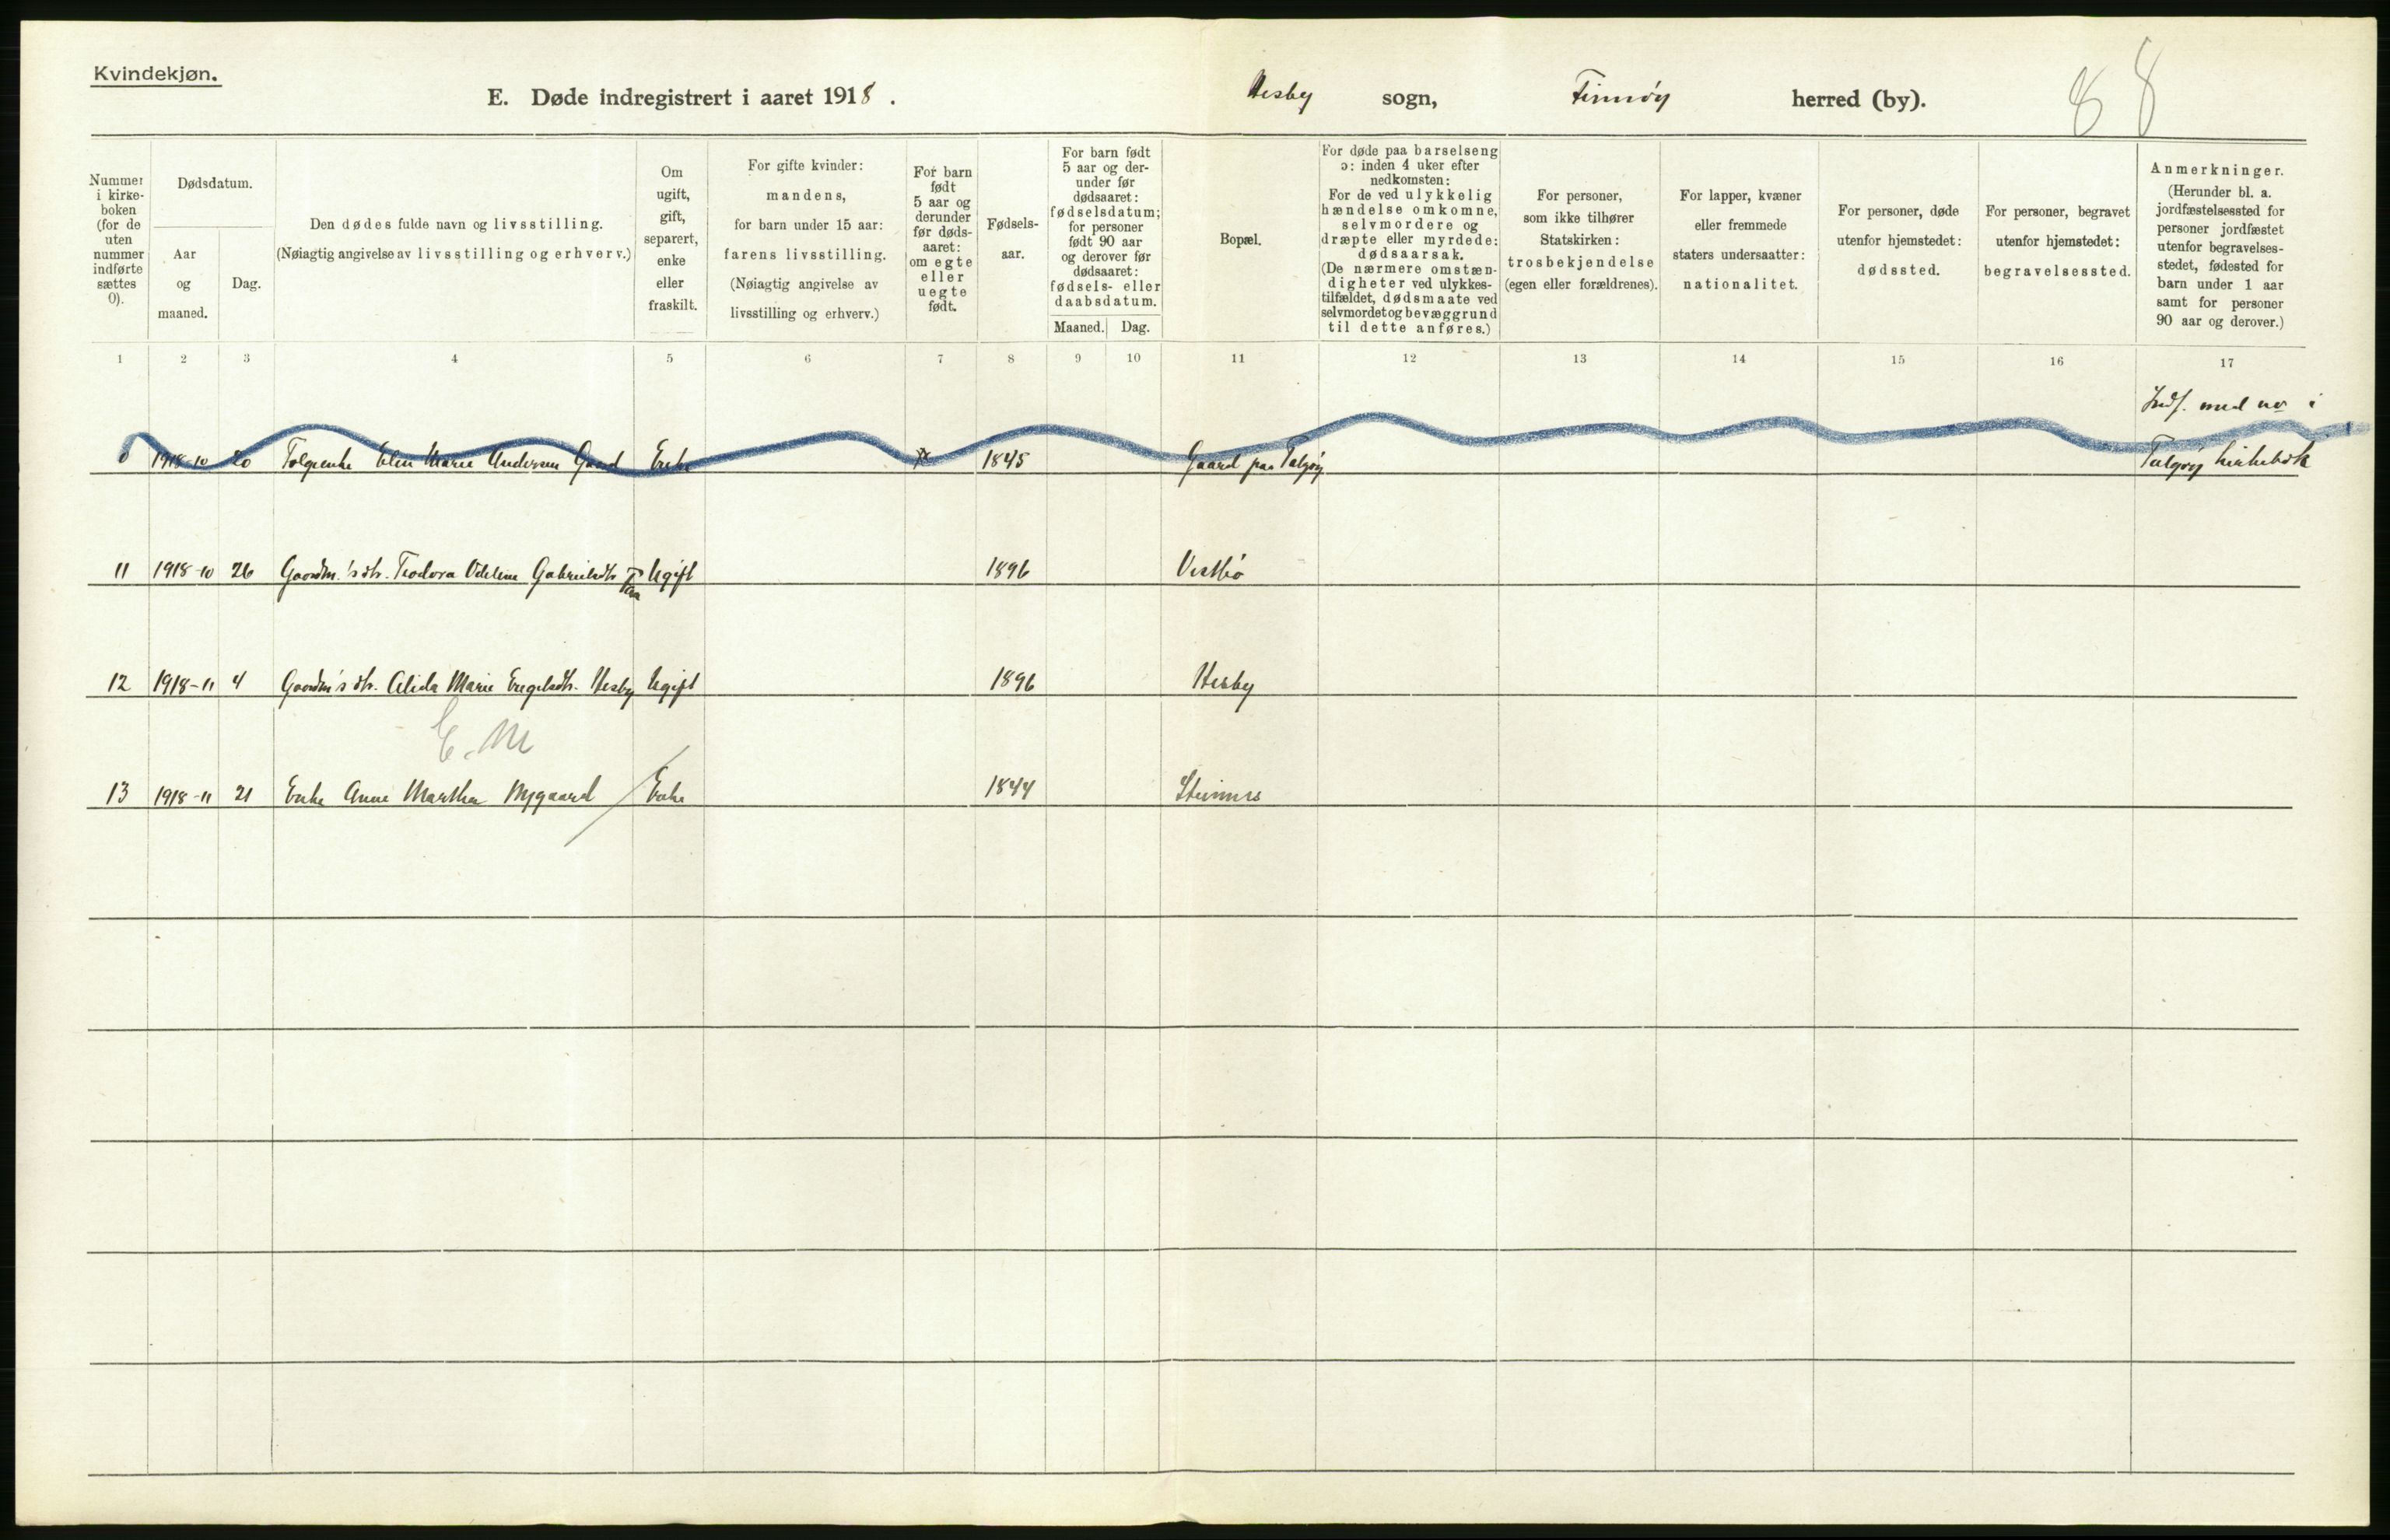 Kvindekjøn.
E. Døde indregistrert i aaret 1918.
Hesby sogn, Finnøy herred (by).
8 8
Nummer i kirkeboken (for de uten nummer indførte sættes 0).
Dødsdatum.
Aar og maaned.
Dag.
Den dødes fulde navn og livsstilling.
(Nøiagtig angivelse av livsstilling og erhverv.)
Om ugift, gift, separert, enke eller fraskilt.
For gifte kvinder: mandens, for barn under 15 aar: farens livsstilling.
(Nøiagtig angivelse av livsstilling og erhverv.)
For barn født 5 aar og derunder før dødsaaret: om egte eller uegte født.
Fødselsaar.
For barn født 5 aar og derunder før dødsaaret: fødselsdatum; for personer født 90 aar og derover før dødsaaret: fødsels- eller daabsdatum.
Maaned. Dag.
Bopæl.
For døde paa barselseng ɔ: inden 4 uker efter nedkomsten:
For de ved ulykkelig hændelse omkomne, selvmordere og dræpte eller myrdede: dødsaarsak.
(De nærmere omstændigheter ved ulykkestilfældet, dødsmaate ved selvmordet og bevæggrund til dette anføres.)
For personer, som ikke tilhører Statskirken: trosbekjendelse (egen eller forældrenes).
For lapper, kvæner eller fremmede staters undersaatter: nationalitet.
For personer, døde utenfor hjemstedet: dødssted.
For personer, begravet utenfor hjemstedet: begravelsessted.
Anmerkninger.
(Herunder bl. a. jordfæstelsessted for personer jordfæstet utenfor begravelsesstedet, fødested for barn under 1 aar samt for personer 90 aar og derover.)
1 2 3 4 5 6 7 8 9 10 11 12 13 14 15 16 17
Indf. med no i
0 1918-10 20 Elen Marie Andersen Gaard Enke 1845 Gaard paa Talgøy Talgøy kirkebok
11 1918-10 26 Gaardm.'s dtr. Teodora Gabrielsdtr. Ugift 1896 Vestbø
12 1918-11 4 Gaardm's dtr. Alida Marie Engelsdtr. Hesby Ugift 1896 Hesby
E. M
13 1918-11 21 Enke Anne Martha Nygaard Enke 1844 Steinnes